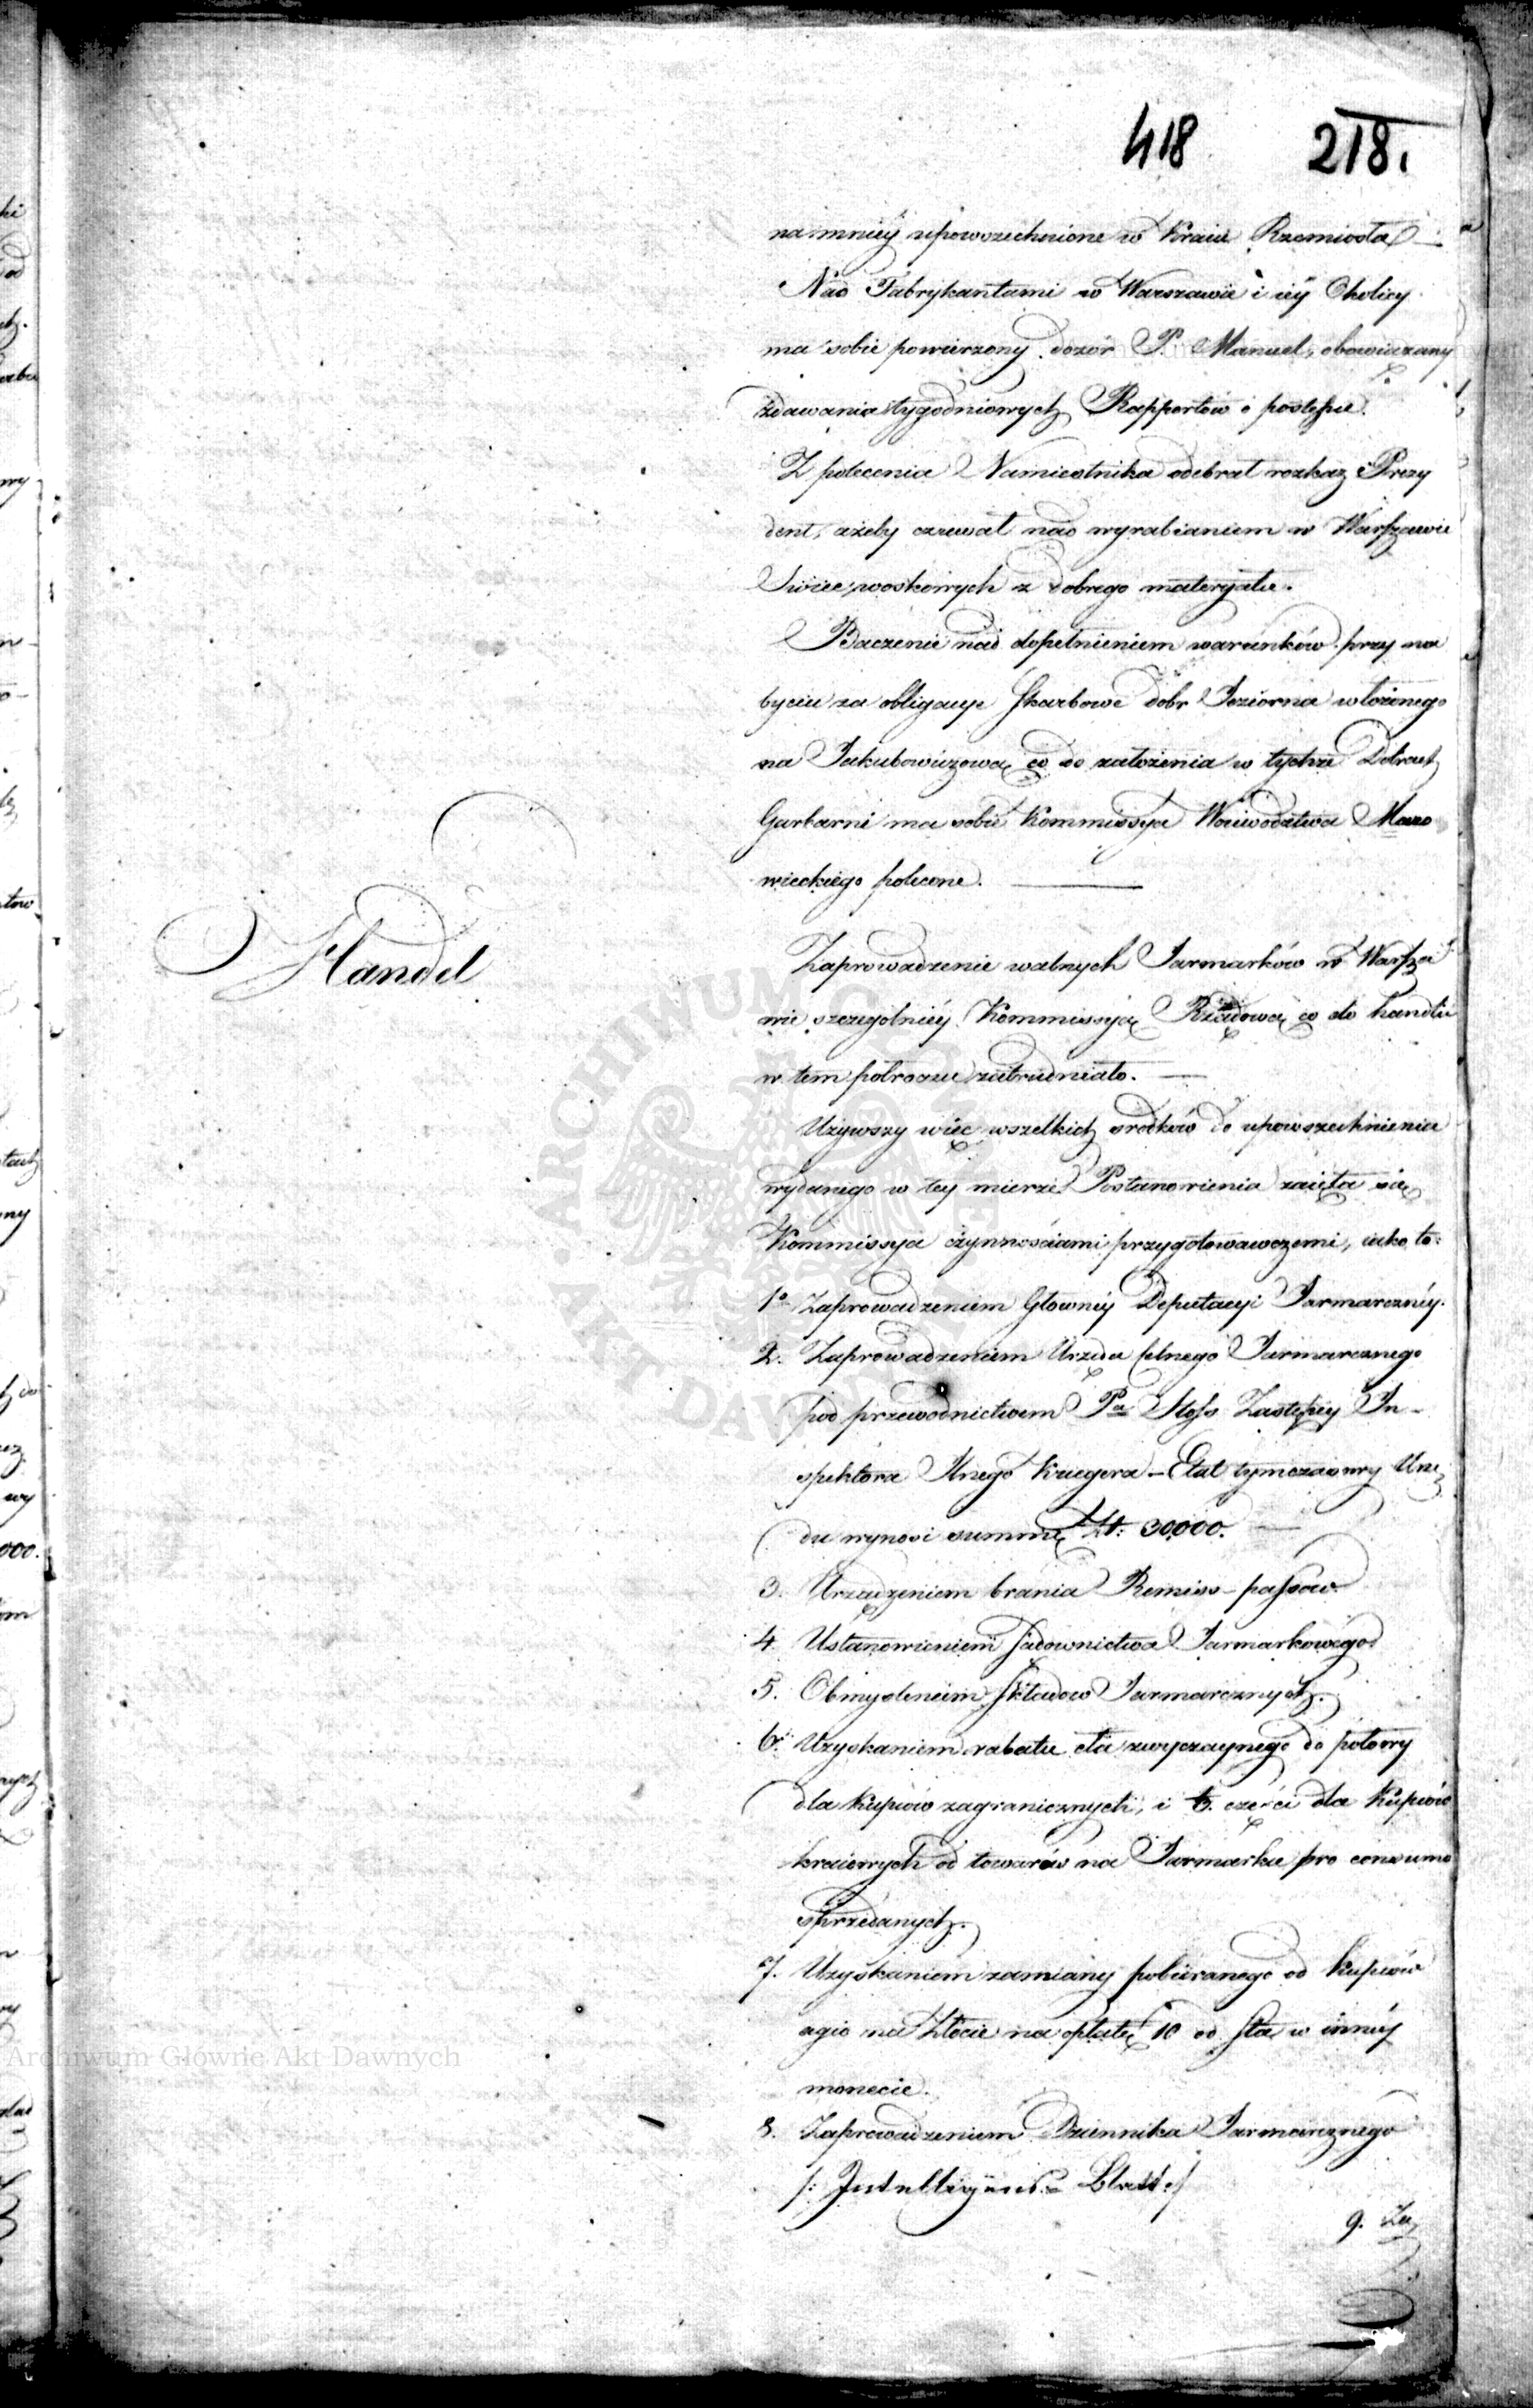 418 218.
naymniéy upowszechnione w Kraiu Rzemiosła. —
Nad Fabrykantami w Warszawie i iéy Okolicy
ma sobie powierzony dozór P. Manuel, obowiązany
zdawania tygodniowych Rapportów o postępie.
Z polecenia Namiestnika odebrał rozkaz Prezy
dent, ażeby czuwał nad wyrabianiem w Warszawie
Swiec woskowych z dobrego materyału.
Baczenie nad dopełnieniem warunków przy na
byciu za obligacye skarbowe dobr Jeziorna włożonego
na Jakubowiczową co do założenia w tychże Dobrach
Garbarni ma sobie Kommissya Woiewodztwa Mazo
wieckiego polecone. —
Handel
Zaprowadzenie walnych Jarmarków w Warsza
wie szczególniéy Kommissyą Rządową co do handlu
w tem półroczu zatrudniało. —
Używszy więc wszelkich srodków do upowszechnienia
wydanego w tey mierze Postanowienia zaięła się
Kommissya czynnościami przygotowawczemi, iako to:
1o Zaprowadzeniem Głownéy Deputacyi Jarmarcznéy.
2. Zaprowadzeniem Urzędu Celnego Jarmarcznego
pod przewodnictwem Pa Stoss Zastępcy In-
spektora Jlnego Kriegera – Etat tymczasowy Urzę
du wynosi summę Zł: 30000. —
3. Urządzeniem brania Remiss-passów
4. Ustanowieniem sądownictwa Jarmarkowego
5. Obmysleniem składow Jarmarcznych.
6. Uzyskaniem rabatu cła zwyczaynego do połowy
dla Kupców zagranicznych, i części dla Kupców
kraiowych od towarów na Jarmarku pro consumo
sprzedanych.
7. Uzyskaniem zamiany pobieranego od Kupców
agio na Złocie na opłatę 10 od sta w innéy
monecie.
8. Zaprowadzeniem Dziennika Jarmarcznego
/: Intelligenz-Blatt :/
9. Za
ARCHIWUM GŁÓWNE AKT DAWNYCH
Archiwum Główne Akt Dawnych